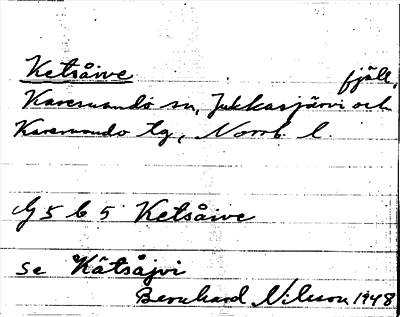 Ketsåive fjäll,
Karesuando sn, Jukkasjärvi och
Karesuando tg, Norrb. l.
G 5 b 5 Ketsåive
se Kåtsåjvi
Bernhard Nilsson 1948